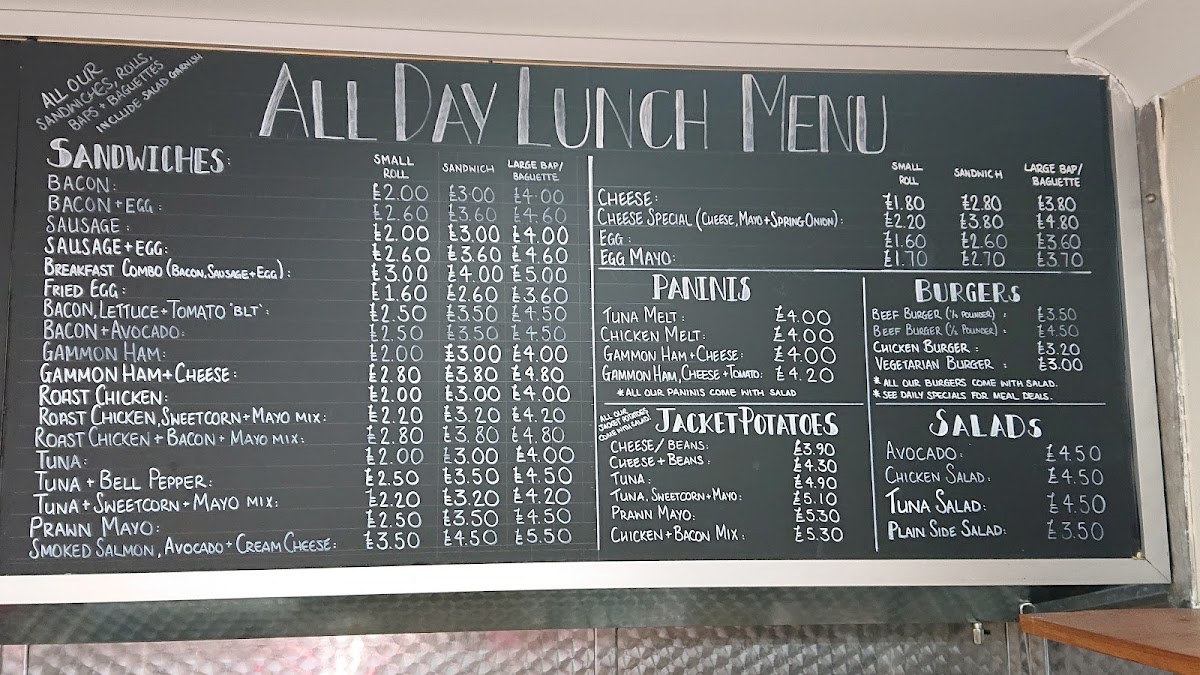 ALL OUR
SANDWICHES, ROLLS,
BAPS + BAGUETTES
INCLUDE SALAD GARNISH
ALL DAY LUNCH MENU
SANDWICHES: SMALL ROLL SANDWICH LARGE BAP/ BAGUETTE
BACON: £2.00 £3.00 £4.00
BACON + EGG: £2.60 £3.60 £4.60
SAUSAGE: £2.00 £3.00 £4.00
SAUSAGE + EGG: £2.60 £3.60 £4.60
BREAKFAST COMBO (BACON, SAUSAGE + EGG): £3.00 £4.00 £5.00
FRIED EGG: £1.60 £2.60 £3.60
BACON, LETTUCE + TOMATO 'BLT': £2.50 £3.50 £4.50
BACON + AVOCADO: £2.50 £3.50 £4.50
GAMMON HAM: £2.00 £3.00 £4.00
GAMMON HAM + CHEESE: £2.80 £3.80 £4.80
ROAST CHICKEN: £2.00 £3.00 £4.00
ROAST CHICKEN, SWEETCORN + MAYO MIX: £2.20 £3.20 £4.20
ROAST CHICKEN + BACON + MAYO MIX: £2.80 £3.80 £4.80
TUNA: £2.00 £3.00 £4.00
TUNA + BELL PEPPER: £2.50 £3.50 £4.50
TUNA + SWEETCORN + MAYO MIX: £2.20 £3.20 £4.20
PRAWN MAYO: £2.50 £3.50 £4.50
SMOKED SALMON, AVOCADO + CREAM CHEESE: £3.50 £4.50 £5.50
SMALL ROLL SANDWICH LARGE BAP/ BAGUETTE
CHEESE: £1.80 £2.80 £3.80
CHEESE SPECIAL (CHEESE, MAYO + SPRING ONION): £2.20 £3.80 £4.80
EGG: £1.60 £2.60 £3.60
EGG MAYO: £1.70 £2.70 £3.70
PANINIS
TUNA MELT: £4.00
CHICKEN MELT: £4.00
GAMMON HAM + CHEESE: £4.00
GAMMON HAM, CHEESE + TOMATO: £4.20
* ALL OUR PANINIS COME WITH SALAD
BURGERS
BEEF BURGER (¼ POUNDER): £3.50
BEEF BURGER (½ POUNDER): £4.50
CHICKEN BURGER: £3.20
VEGETARIAN BURGER: £3.00
* ALL OUR BURGERS COME WITH SALAD.
* SEE DAILY SPECIALS FOR MEAL DEALS.
ALL OUR
JACKET POTATOES
COME WITH SALAD!
JACKET POTATOES
CHEESE/BEANS: £3.90
CHEESE + BEANS: £4.30
TUNA: £4.90
TUNA, SWEETCORN + MAYO: £5.10
PRAWN MAYO: £5.30
CHICKEN + BACON MIX: £5.30
SALADS
AVOCADO: £4.50
CHICKEN SALAD: £4.50
TUNA SALAD: £4.50
PLAIN SIDE SALAD: £3.50